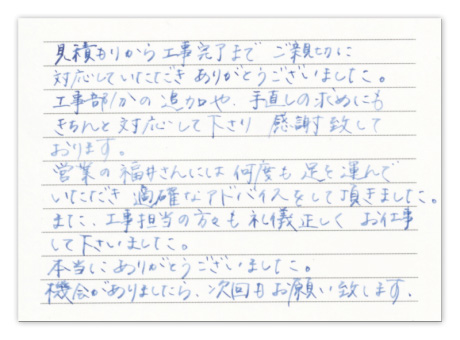 見積もりから工事完了まで ご親切に
対応していただき ありがとうございました。
工事部分の追加や、手直しの求めにも
きちんと対応して下さり 感謝致して
おります。
営業の福井さんには 何度も足を運んで
いただき 適確なアドバイスをして頂きました。
また、工事担当の方々も礼儀正しく お仕事
して下さいました。
本当にありがとうございました。
機会がありましたら、次回もお願い致します.